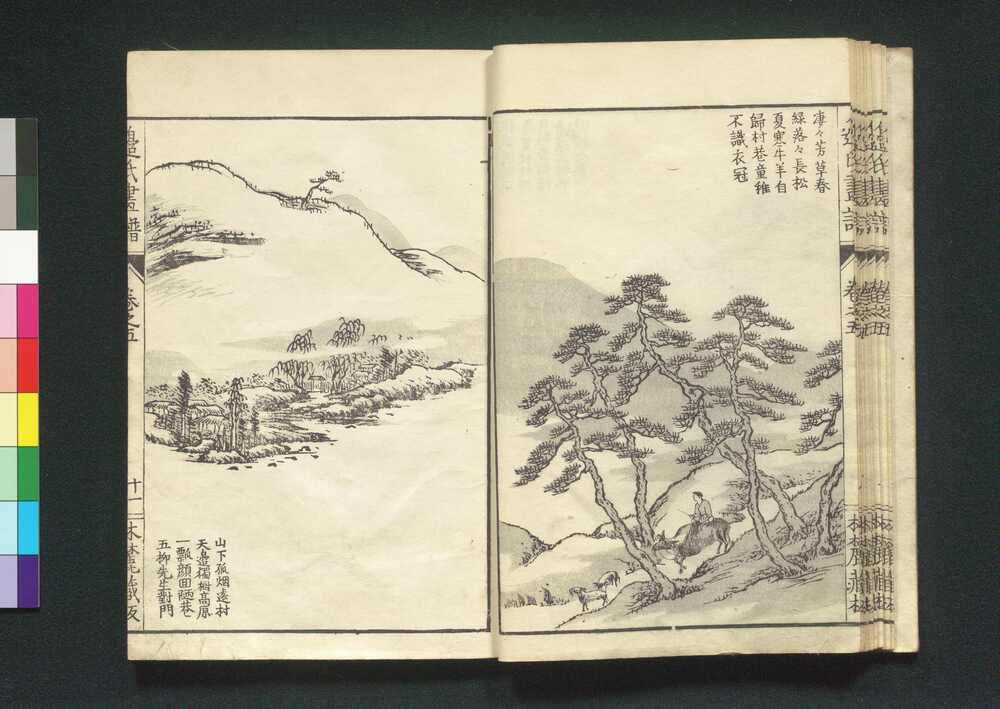 凄々芳草春
緑落々長松
夏寒牛羊自
歸村巷童稚
不識衣冠
山下孤烟遠村
天邉獨樹高原
一瓢顔回陋巷
五柳先生對門
邉氏畫譜
卷之五
十一
林麓藏板